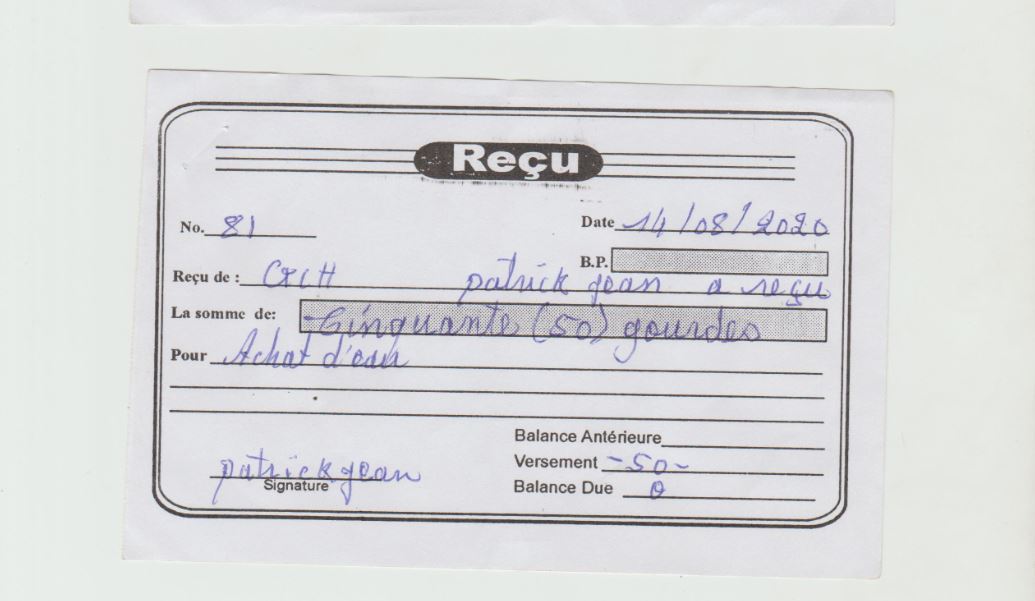 Reçu
No. 81
Date 14/08/2020
B.P.
Reçu de : patrick jean a reçu
La somme de: -Cinquante (50) gourdes
Pour Achat d'eau
Balance Antérieure
Versement -50-
Balance Due 0
patrick jean
Signature